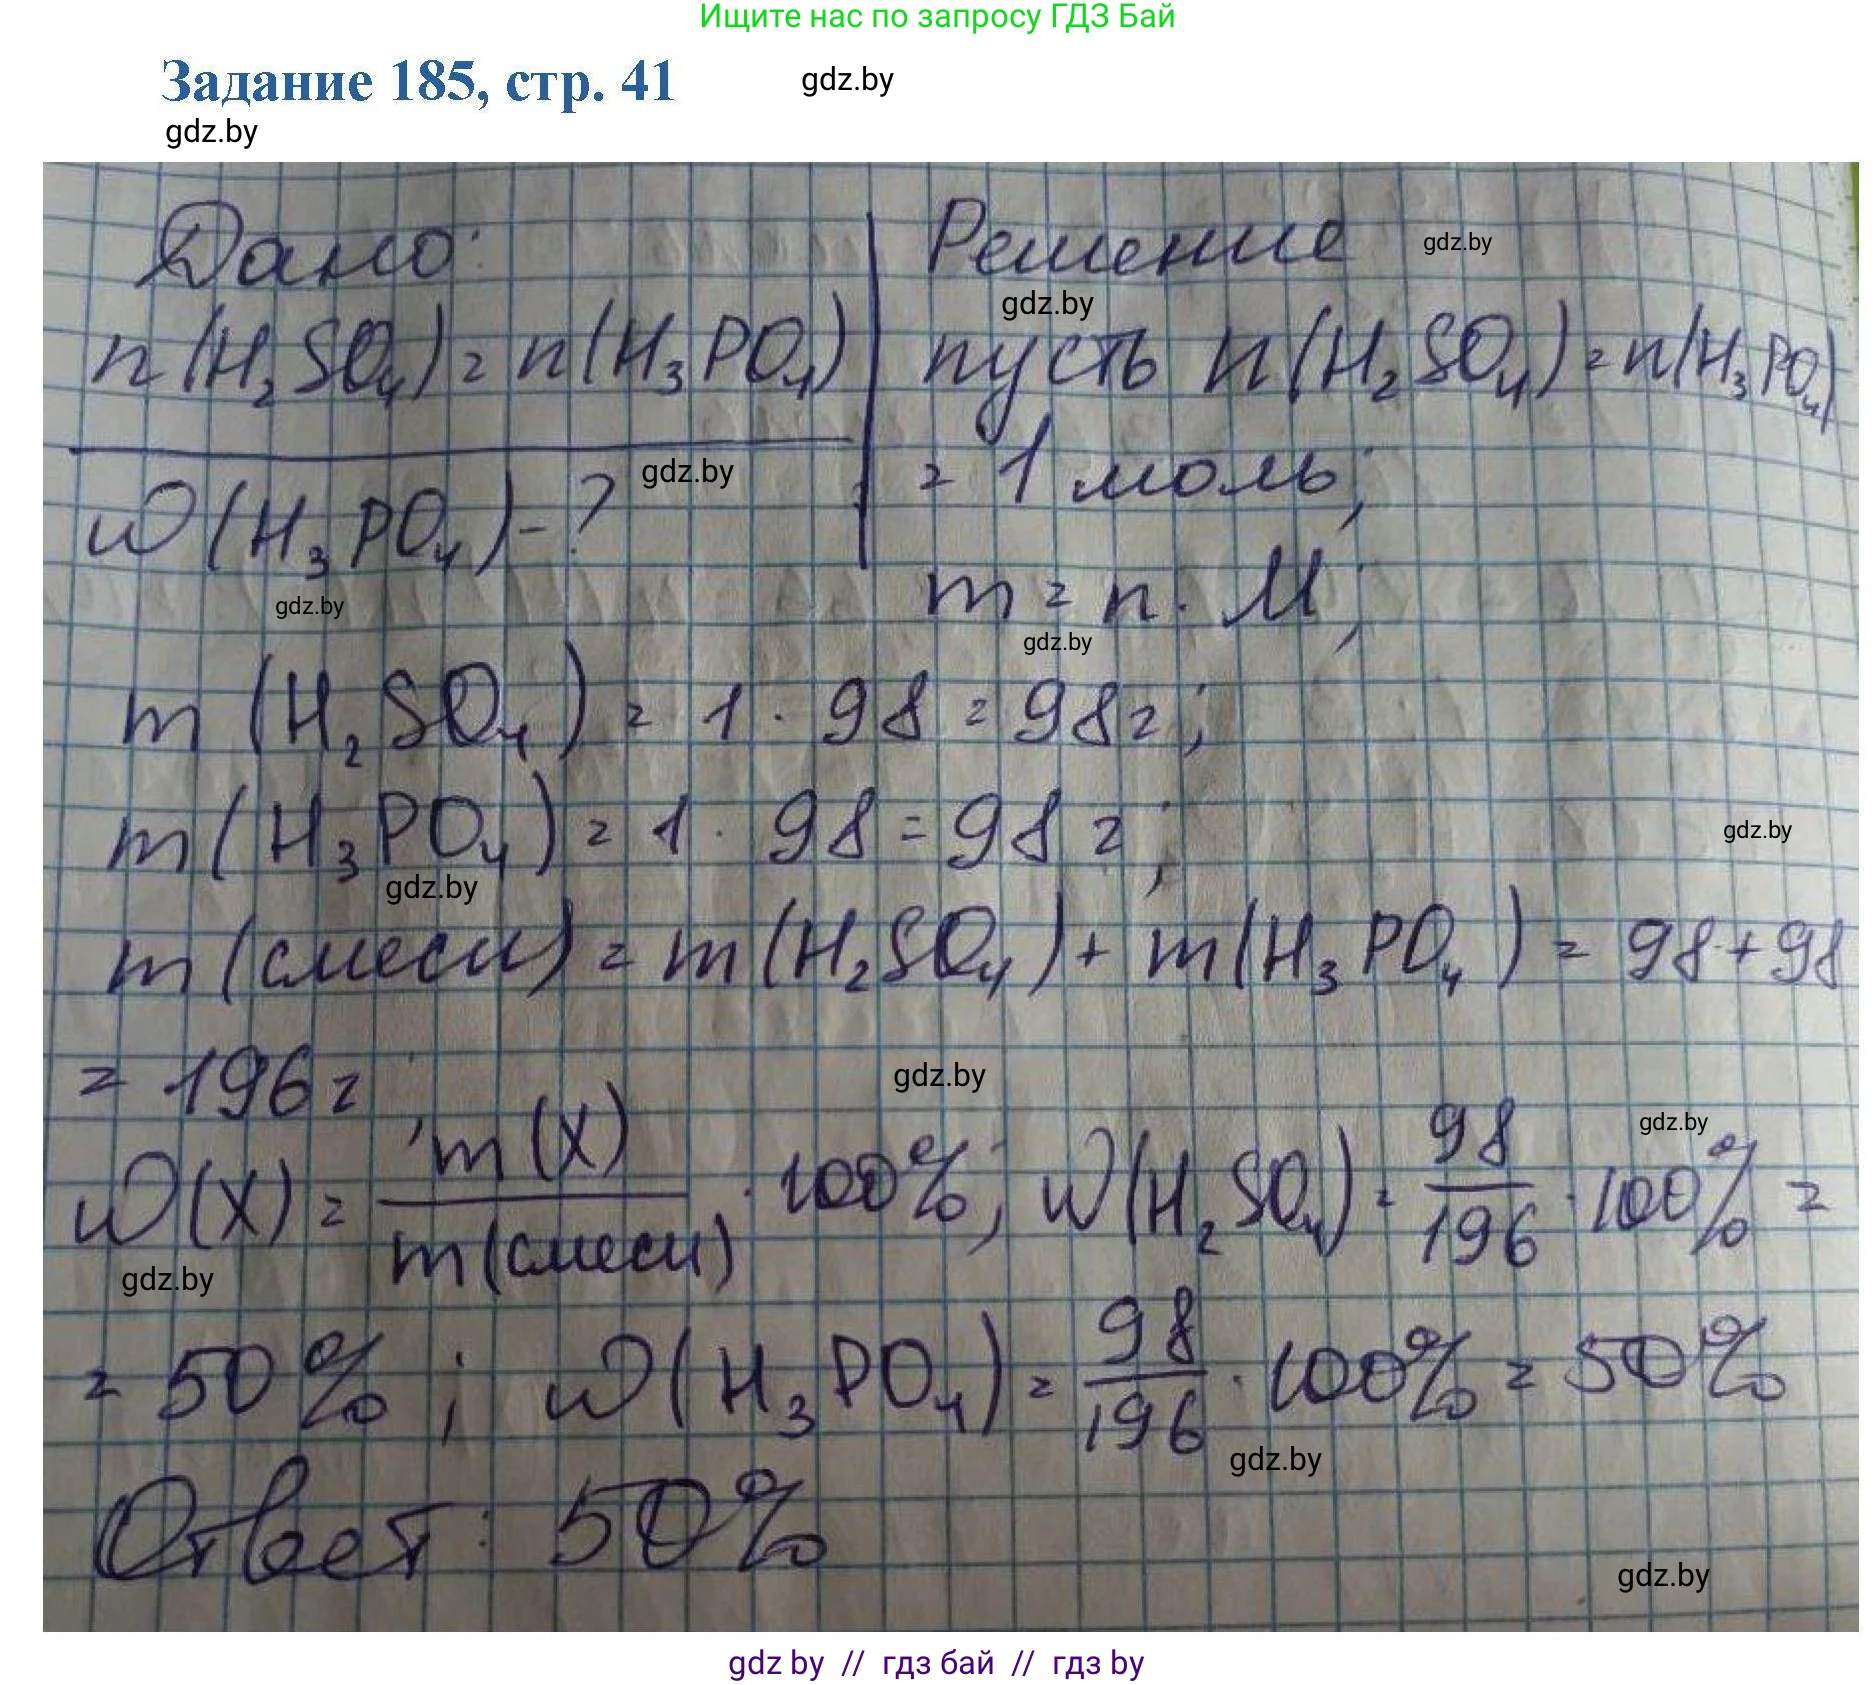 Ищите нас по запросу ГДЗ Бай
Задание 185, стр. 41
gdz.by
gdz.by
Дано:
n(H₂SO₄) = n(H₃PO₄)
gdz.by
w(H₃PO₄) - ?
gdz.by
Решение
gdz.by
gdz.by
пусть n(H₂SO₄) = n(H₃PO₄)
= 1 моль;
m = n · M;
gdz.by
m(H₂SO₄) = 1 · 98 = 98 г;
m(H₃PO₄) = 1 · 98 = 98 г;
gdz.by
gdz.by
m(смеси) = m(H₂SO₄) + m(H₃PO₄) = 98 + 98
= 196 г;
gdz.by
gdz.by
w(X) = m(X) / m(смеси) · 100%; w(H₂SO₄) = 98/196 · 100% =
gdz.by
= 50%; w(H₃PO₄) = 98/196 · 100% = 50%
gdz.by
Ответ: 50%
gdz.by
gdz by // гдз бай // гдз by